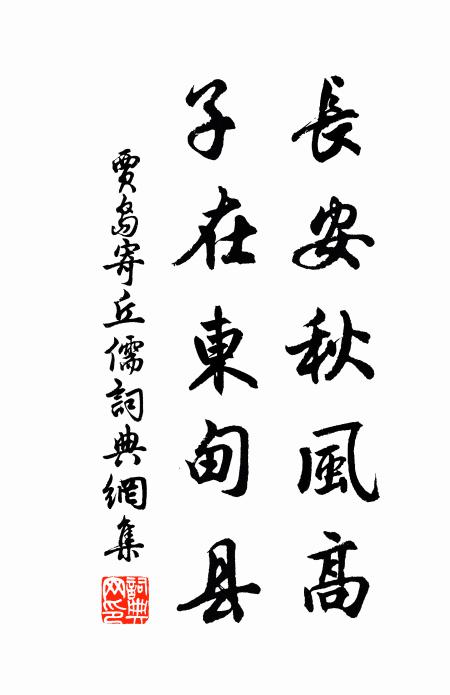 長安秋風高
子在東甸县
賈島寄丘儒詞典網集
詞典網印